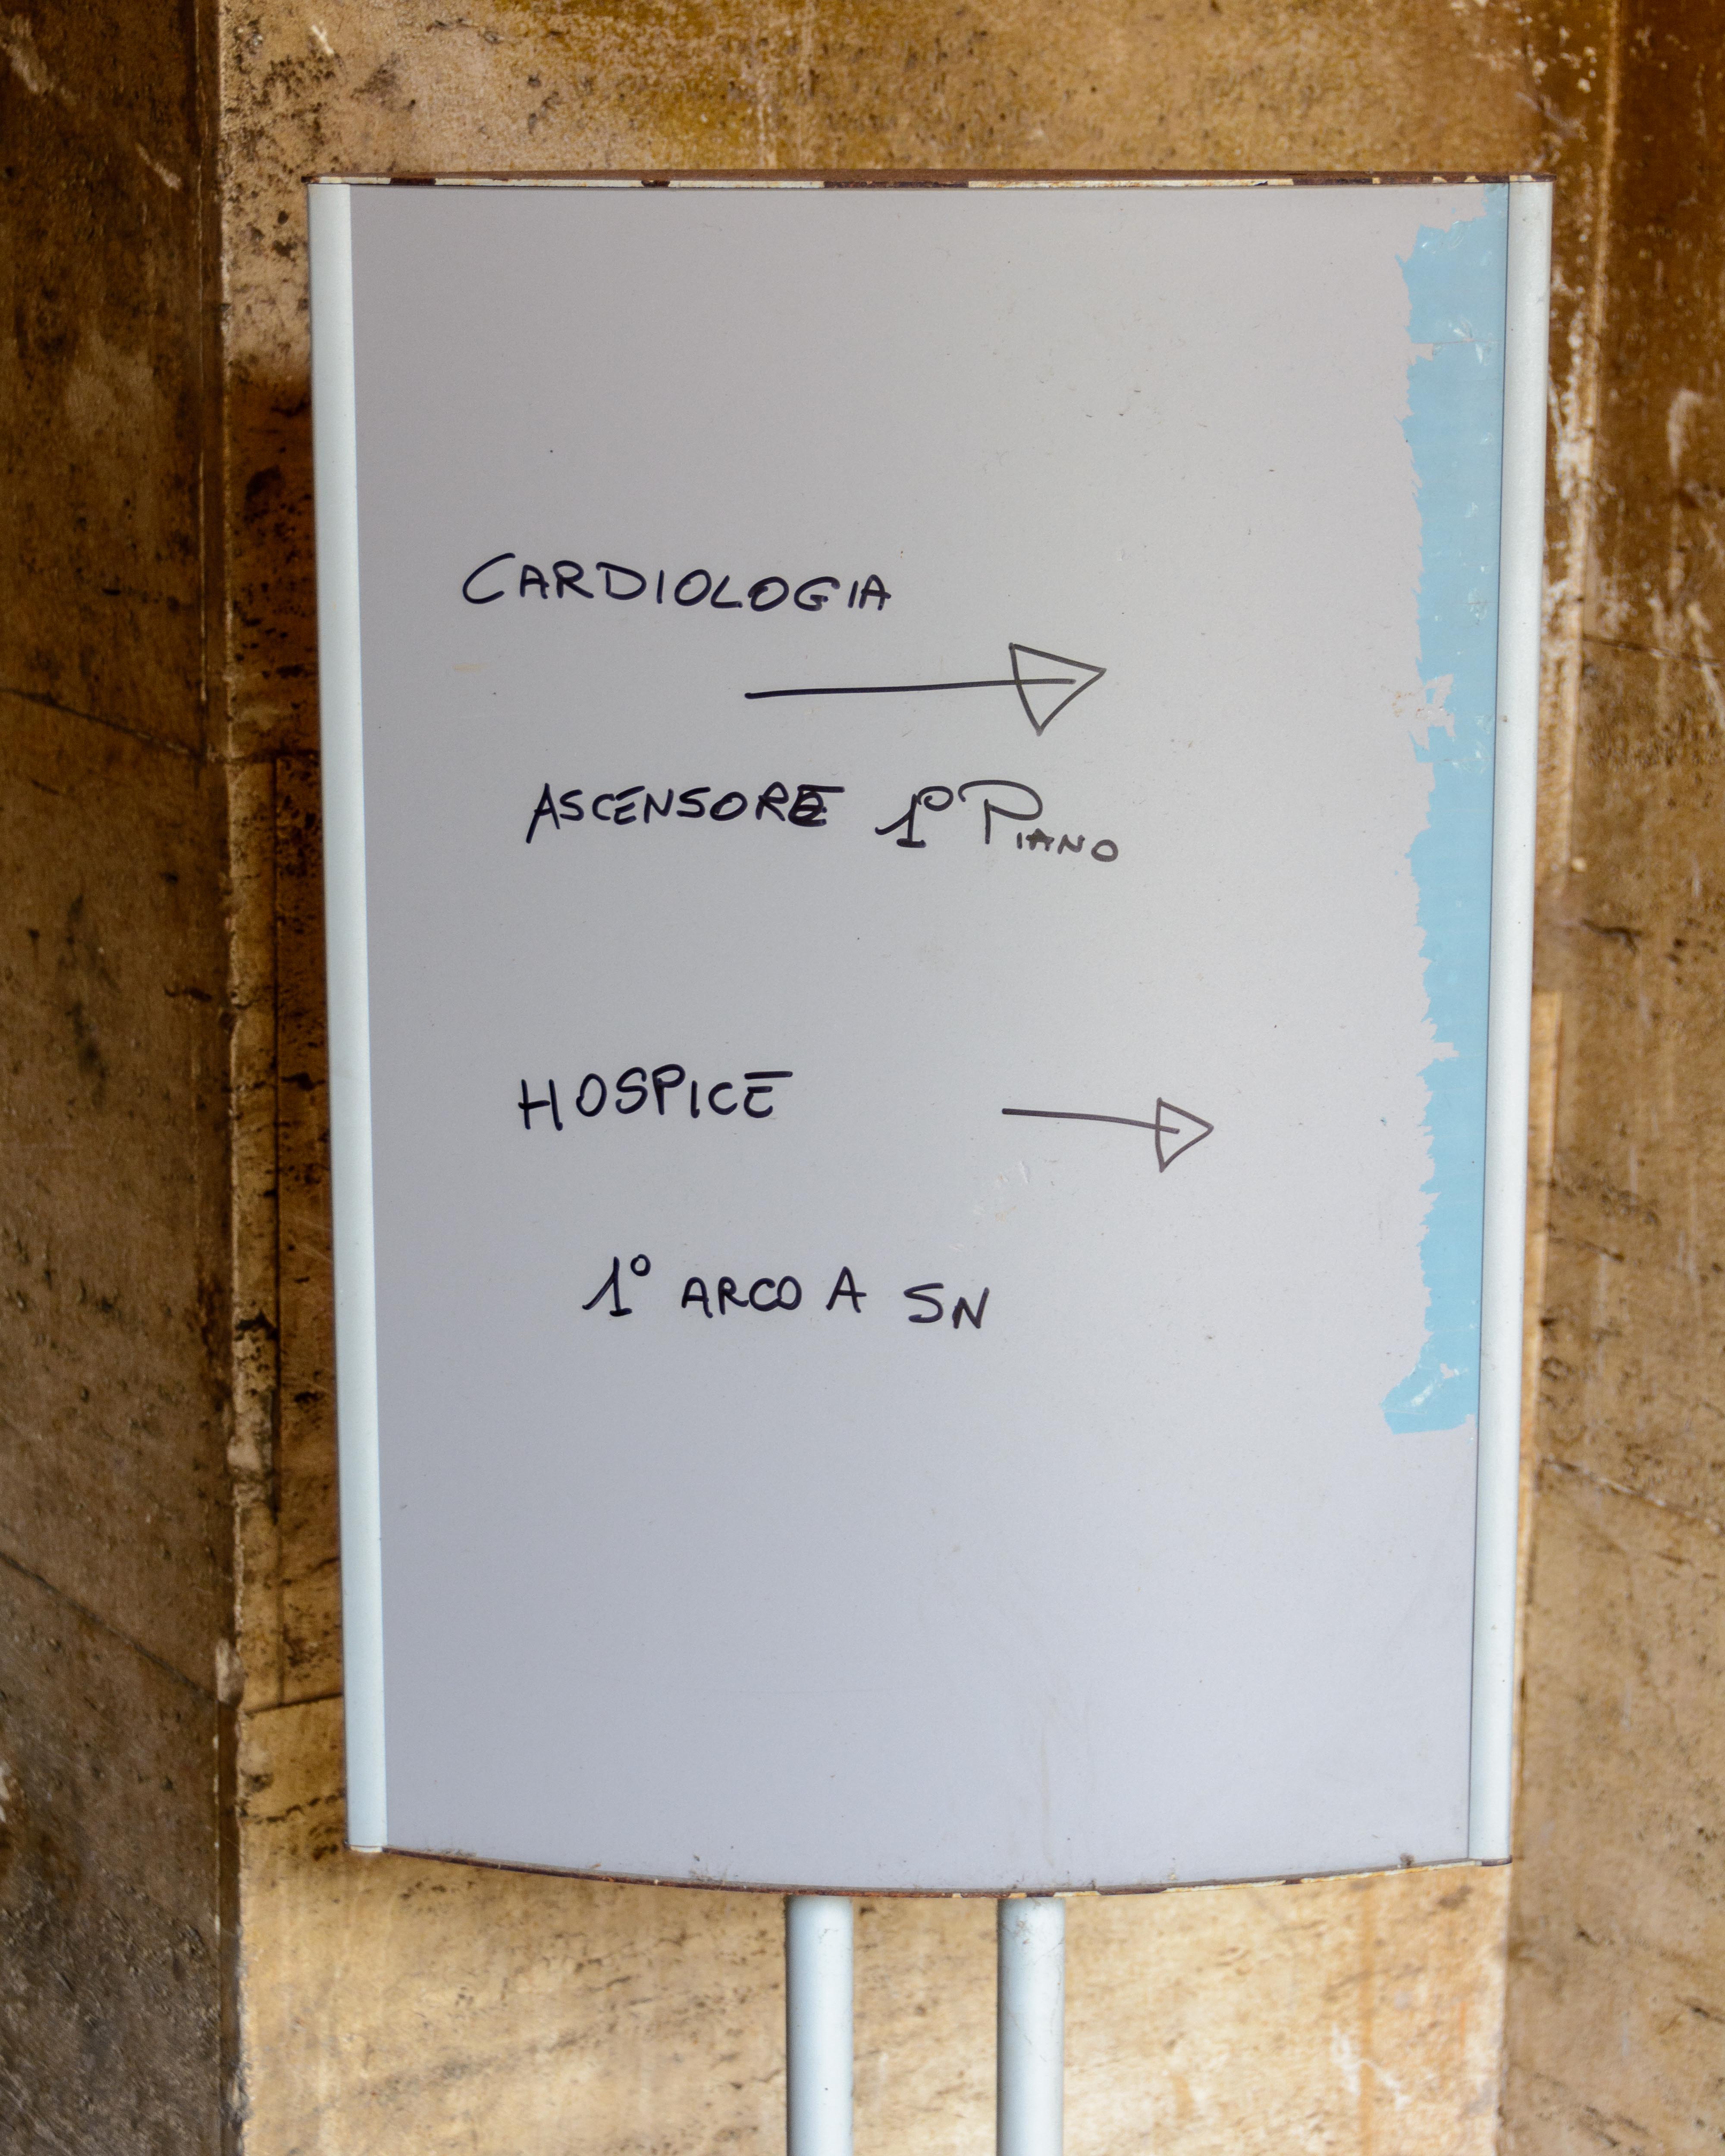 CARDIOLOGIA
ASCENSORE 1° PIANO
HOSPICE
1° ARCO A SN